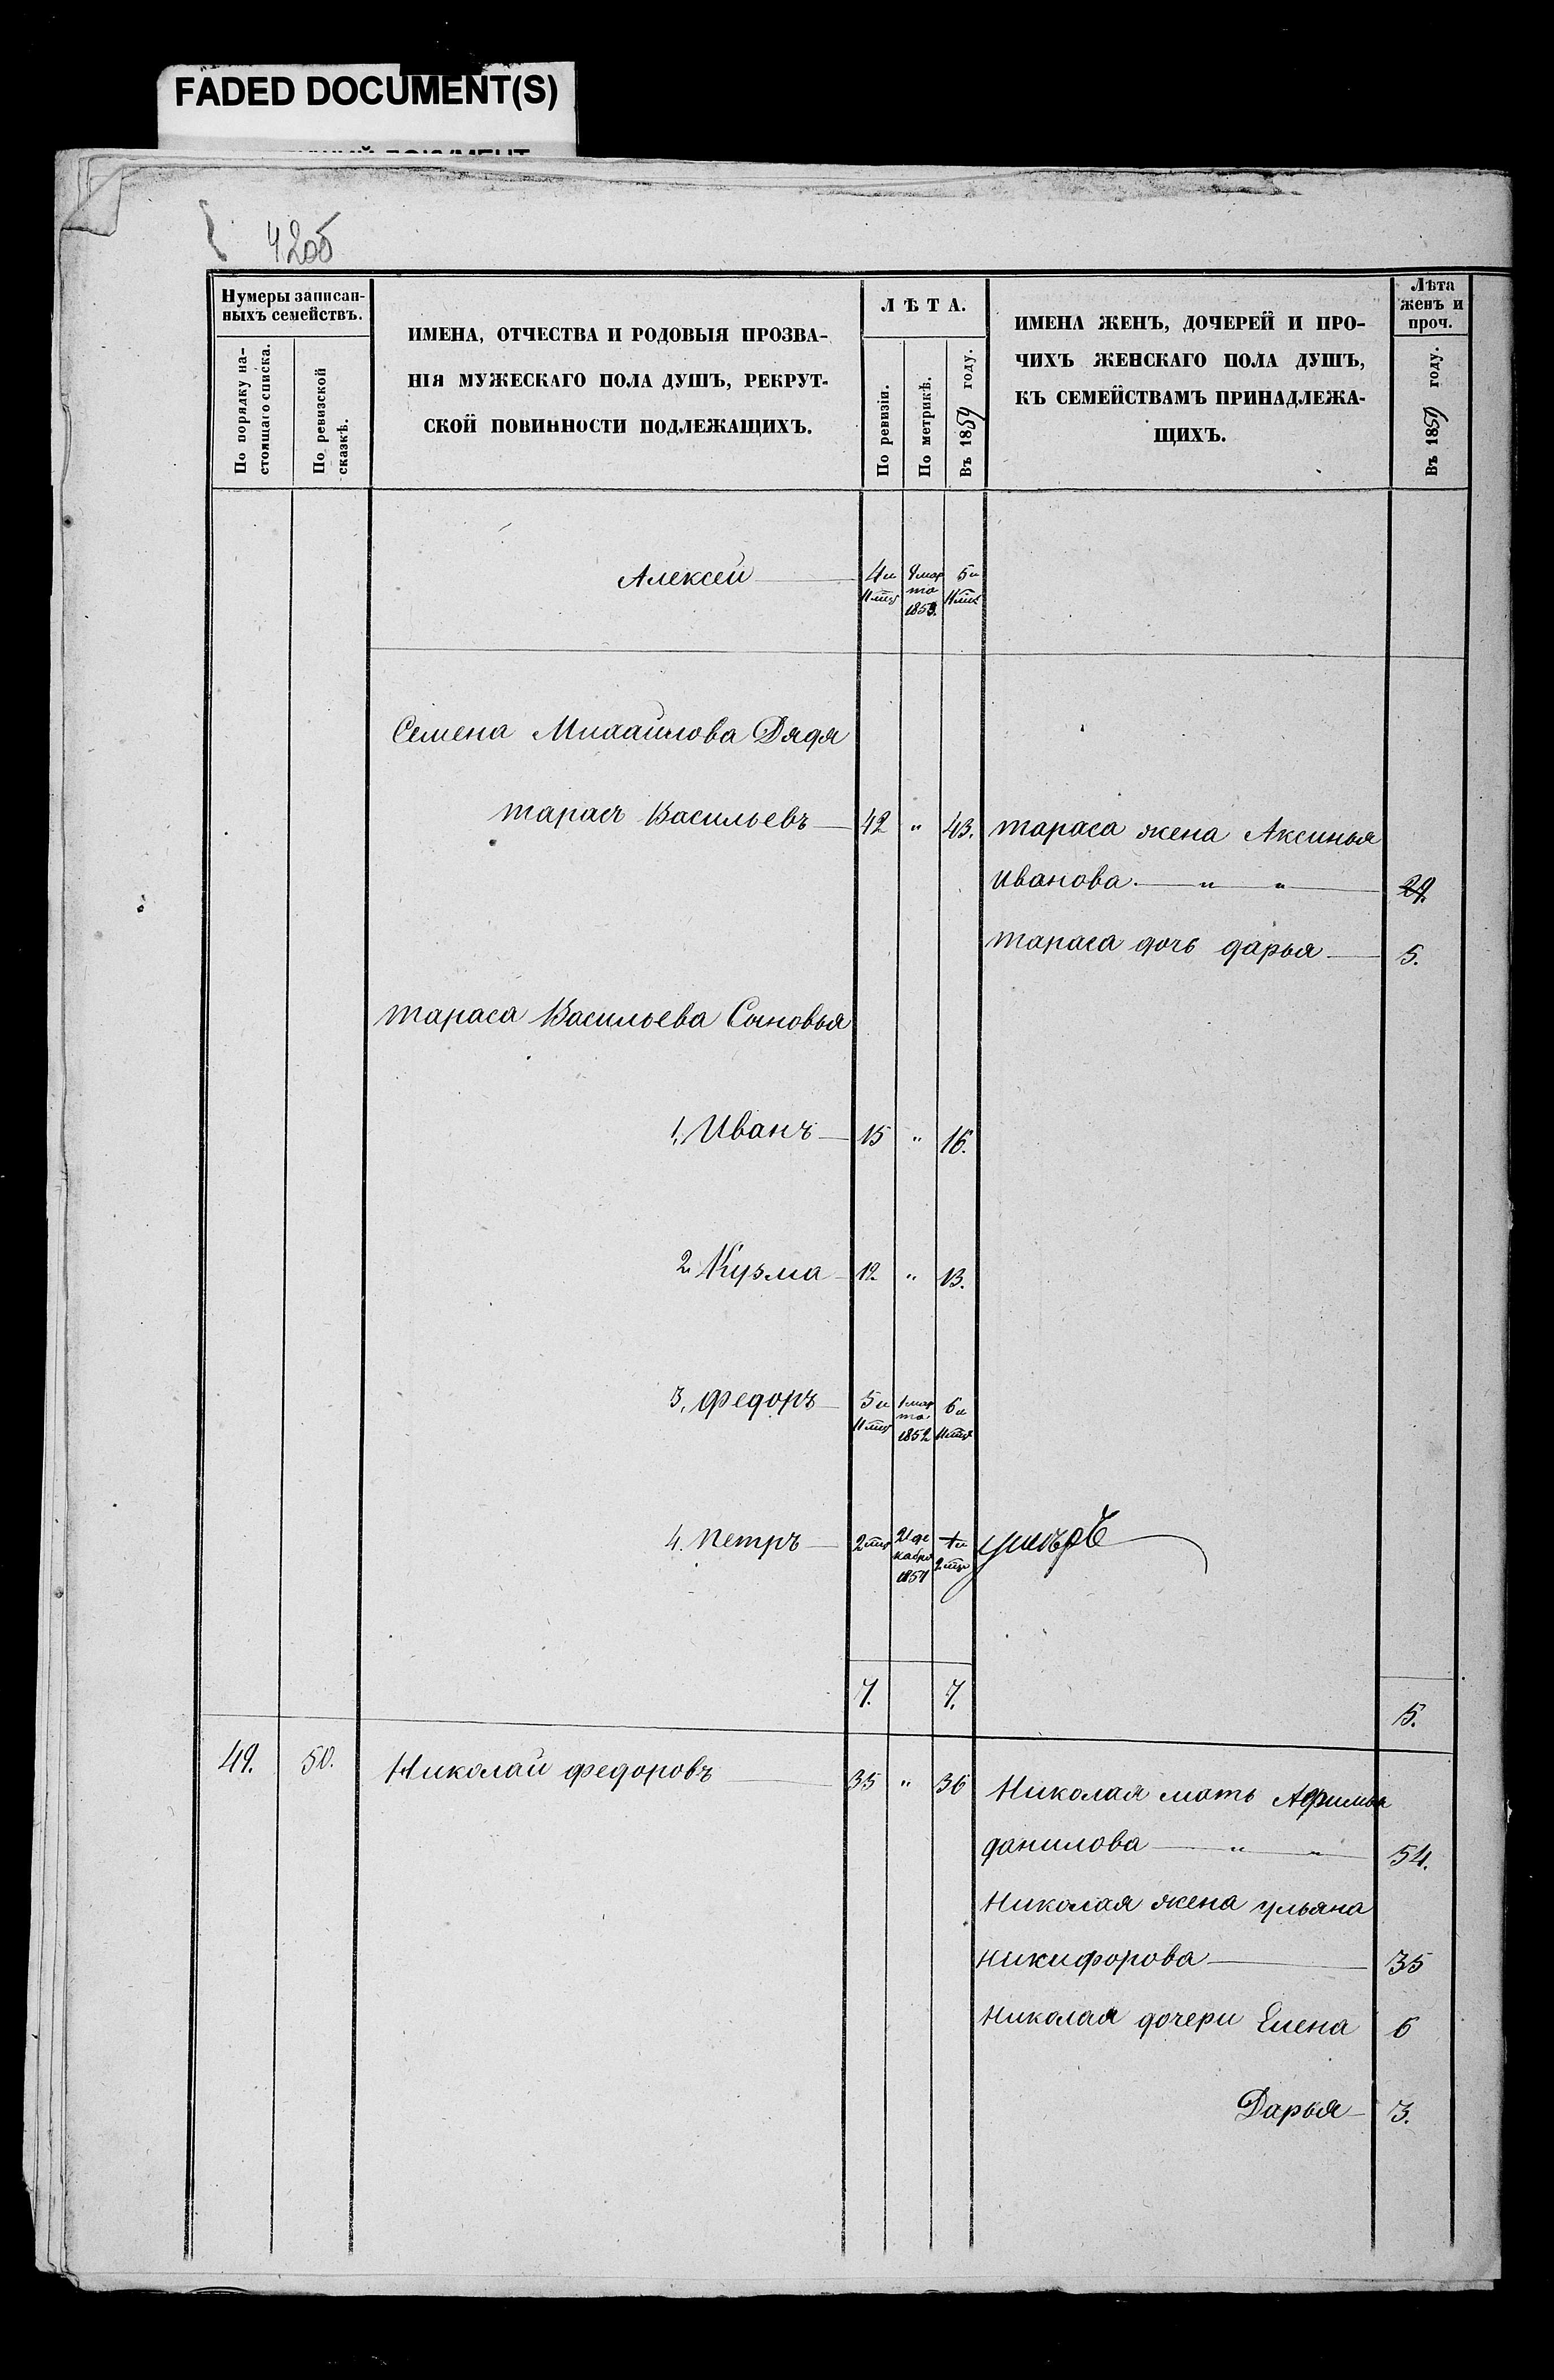 FADED DOCUMENT(S)
42об
Нумеры записан-
ныхъ семействъ.
По порядку на-
стоящаго списка.
По ревизской
сказкѣ.
ИМЕНА, ОТЧЕСТВА И РОДОВЫЯ ПРОЗВА-
НІЯ МУЖЕСКАГО ПОЛА ДУШЪ, РЕКРУТ-
СКОЙ ПОВИННОСТИ ПОДЛЕЖАЩИХЪ.
ЛѢТА.
По ревизіи.
По метрикѣ.
Въ 1859 году.
ИМЕНА ЖЕНЪ, ДОЧЕРЕЙ И ПРО-
ЧИХЪ ЖЕНСКАГО ПОЛА ДУШЪ,
КЪ СЕМЕЙСТВАМЪ ПРИНАДЛЕЖА-
ЩИХЪ.
Лѣта
женъ и
проч.
Въ 1859 году.
Алексей 4 и 11 мцъ 8 марта 1853. 5 и 11 мцъ
Семена Михайлова Дядя
тарасъ Васильевъ 42 " 43. тараса жена Аксинья
Иванова " " 29.
тараса дочь дарья 5.
тараса Васильева Сыновья
1, Иванъ 15 " 16.
2, Кузма 12 " 13.
3, федоръ 5 и 11 мцъ 1 марта 1852 6 и 11 мцъ
4, петръ 2 мцъ 21 декабря 1857 1 и 2 мцъ
7. 7. 5.
49. 50. Николай федоровъ 35 " 36 Николая мать Афимья
данилова " " 54.
Николая жена ульяна
никифорова 35
Николая дочери Елена 6
Дарья 3.